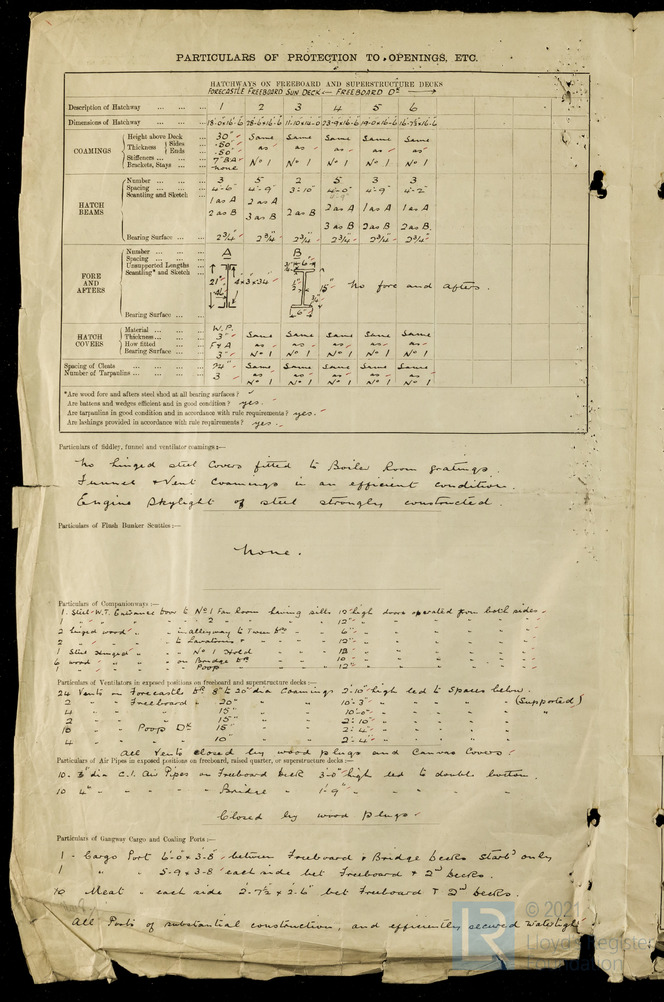 PARTICULARS OF PROTECTION TO OPENINGS, ETC.
HATCHWAYS ON FREEBOARD AND SUPERSTRUCTURE DECKS
FORECASTLE FREEBOARD SUN DECK ← FREEBOARD DK →
Description of Hatchway ... ... ... 1 2 3 4 5 6
Dimensions of Hatchway ... ... ... 18-0x16-6 28-6x16-6 11-10x16-0 23-9x16-6 19-0x16-6 16-7½x16-6
COAMINGS
Height above Deck ... 30" Same Same Same Same Same
Thickness { Sides ... .50" as as as as as
Ends ... .50"
Stiffeners ... ... 7" BA No 1 No 1 No 1 No 1 No 1
Brackets, Stays ... ... none
HATCH BEAMS
Number ... ... ... 3 5 2 5 3 3
Spacing ... ... ... 4-6" 4-9" 3-10" 4-0" 4-9" 4-2"
Scantling and Sketch ... 1 as A 2 as A 2 as A 1 as A 1 as A
2 as B 3 as B 2 as B 3 as B 2 as B 2 as B
Bearing Surface ... ... 2¾" 2¾" 2¾" 2¾" 2¾" 2¾"
FORE AND AFTERS
Number ... ... ... A B
Spacing ... ... ...
Unsupported Lengths
Scantling* and Sketch ... 21" 4 x 3 x 34" 15" 6" No fore and afters.
Bearing Surface ... ...
HATCH COVERS
Material ... ... ... W.P.
Thickness ... ... ... 3" Same Same Same Same Same
How fitted ... ... F & A as as as as as
Bearing Surface ... ... 3" No 1 No 1 No 1 No 1 No 1
Spacing of Cleats ... ... ... 24" Same Same Same Same Same
Number of Tarpaulins ... ... ... 3 as as as as as
No 1 No 1 No 1 No 1 No 1
*Are wood fore and afters steel shod at all bearing surfaces ?
Are battens and wedges efficient and in good condition ? yes.
Are tarpaulins in good condition and in accordance with rule requirements ? yes.
Are lashings provided in accordance with rule requirements ? yes.
Particulars of fiddley, funnel and ventilator coamings :—
No hinged steel Covers fitted to Boiler Room gratings.
Funnel & Vent Coamings in an efficient condition.
Engine Skylight of steel strongly constructed.
Particulars of Flush Bunker Scuttles :—
None.
Particulars of Companionways :—
1 Steel W.T. Entrance door to No 1 Fan Room having sills 12" high doors operated from both sides
1 " " " " 2 " " " 12" " " " " " "
2 hinged wood " " in alleyway to Tween Dks " " 6" " " " " " "
2 " " " to Lavatories " " 12" " " " " " "
1 Steel Hinged " " " No 1 Hold " " 18 " " " " " "
6 wood " " on Bridge Dk " " 10 " " " " " "
1 " " " " Poop " " 12" " " " " " "
Particulars of Ventilators in exposed positions on freeboard and superstructure decks :—
24 Vents on Forecastle Dk 8" to 20" dia Coamings 2-10" high led to Spaces below.
2 " " Freeboard " 20" " " 10-3" " " " " (Supported)
4 " " " 15" " " 10-0" " " " " "
2 " " " 15" " " 2-10" " " " "
" " Poop Dk 15" " " 2-4" " " " "
4 " " " 10" " " 2-4" " " " "
All Vents closed by wood plugs and Canvas Covers.
Particulars of Air Pipes in exposed positions on freeboard, raised quarter, or superstructure decks :—
10. " dia C.I. Air Pipes on Freeboard deck 3-0" high led to double bottom.
10 4" " " " " Bridge " 1-9" " " " "
Closed by wood plugs
Particulars of Gangway Cargo and Coaling Ports :—
1 - Cargo Port 6-0 x 3-8 between Freeboard & Bridge decks Starbd only
1 " " 5-9 x 3-8 each side bet Freeboard & 2nd decks.
10 Meat " each side 2-7½ x 2-6" bet Freeboard & 2nd decks.
All Ports of substantial construction, and efficiently secured Watertight
LR
© 2021
Lloyd's Register
Foundation